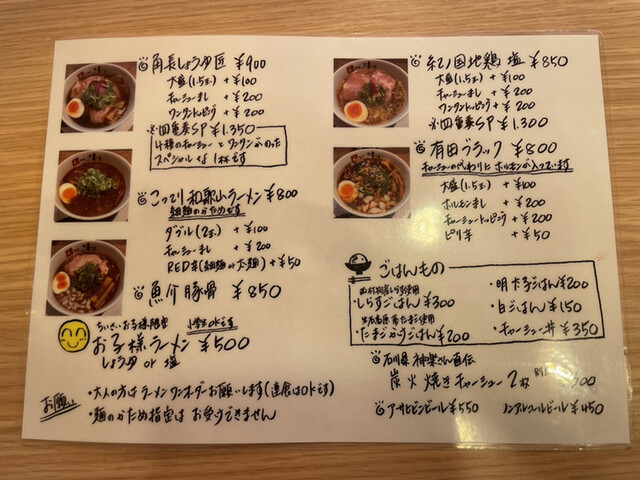 角長しょうゆ匠 ¥900
大盛(1.5玉) +¥100
チャーシューまし +¥200
ワンタントッピング +¥200
※四重奏SP ¥1.350
4種のチャーシューとワンタンがのった
スペシャルな1杯です
こってり和歌山ラーメン ¥800
細麺のかためです
ダブル(2玉) +¥100
チャーシューまし +¥200
RED辛(細麺or太麺) +¥50
魚介豚骨 ¥850
ちいさいお子様限定 小学生OKです
お子様ラーメン ¥500
しょうゆ or 塩
お願い
・大人の方はラーメンワンオーダーお願いします(連食はOKです)
・麺のかため指定はお受けできません
紀ノ国地鶏 塩 ¥850
大盛(1.5玉) +¥100
チャーシューまし +¥200
ワンタントッピング +¥200
※四重奏SP ¥1.300
有田ブラック ¥800
チャーシューの代わりにホルモンが入っています
大盛(1.5玉) +¥100
ホルモンまし +¥200
チャーシュートッピング +¥200
ピリ辛 +¥50
ごはんもの
しらす使用
・しらすごはん ¥300
たまご使用
・たまごかけごはん ¥200
・明太子ごはん ¥200
・白ごはん ¥150
・チャーシュー丼 ¥350
石川県 神楽さん直伝
炭火焼きチャーシュー 2枚
アサヒビンビール ¥550
ノンアルコールビール ¥450